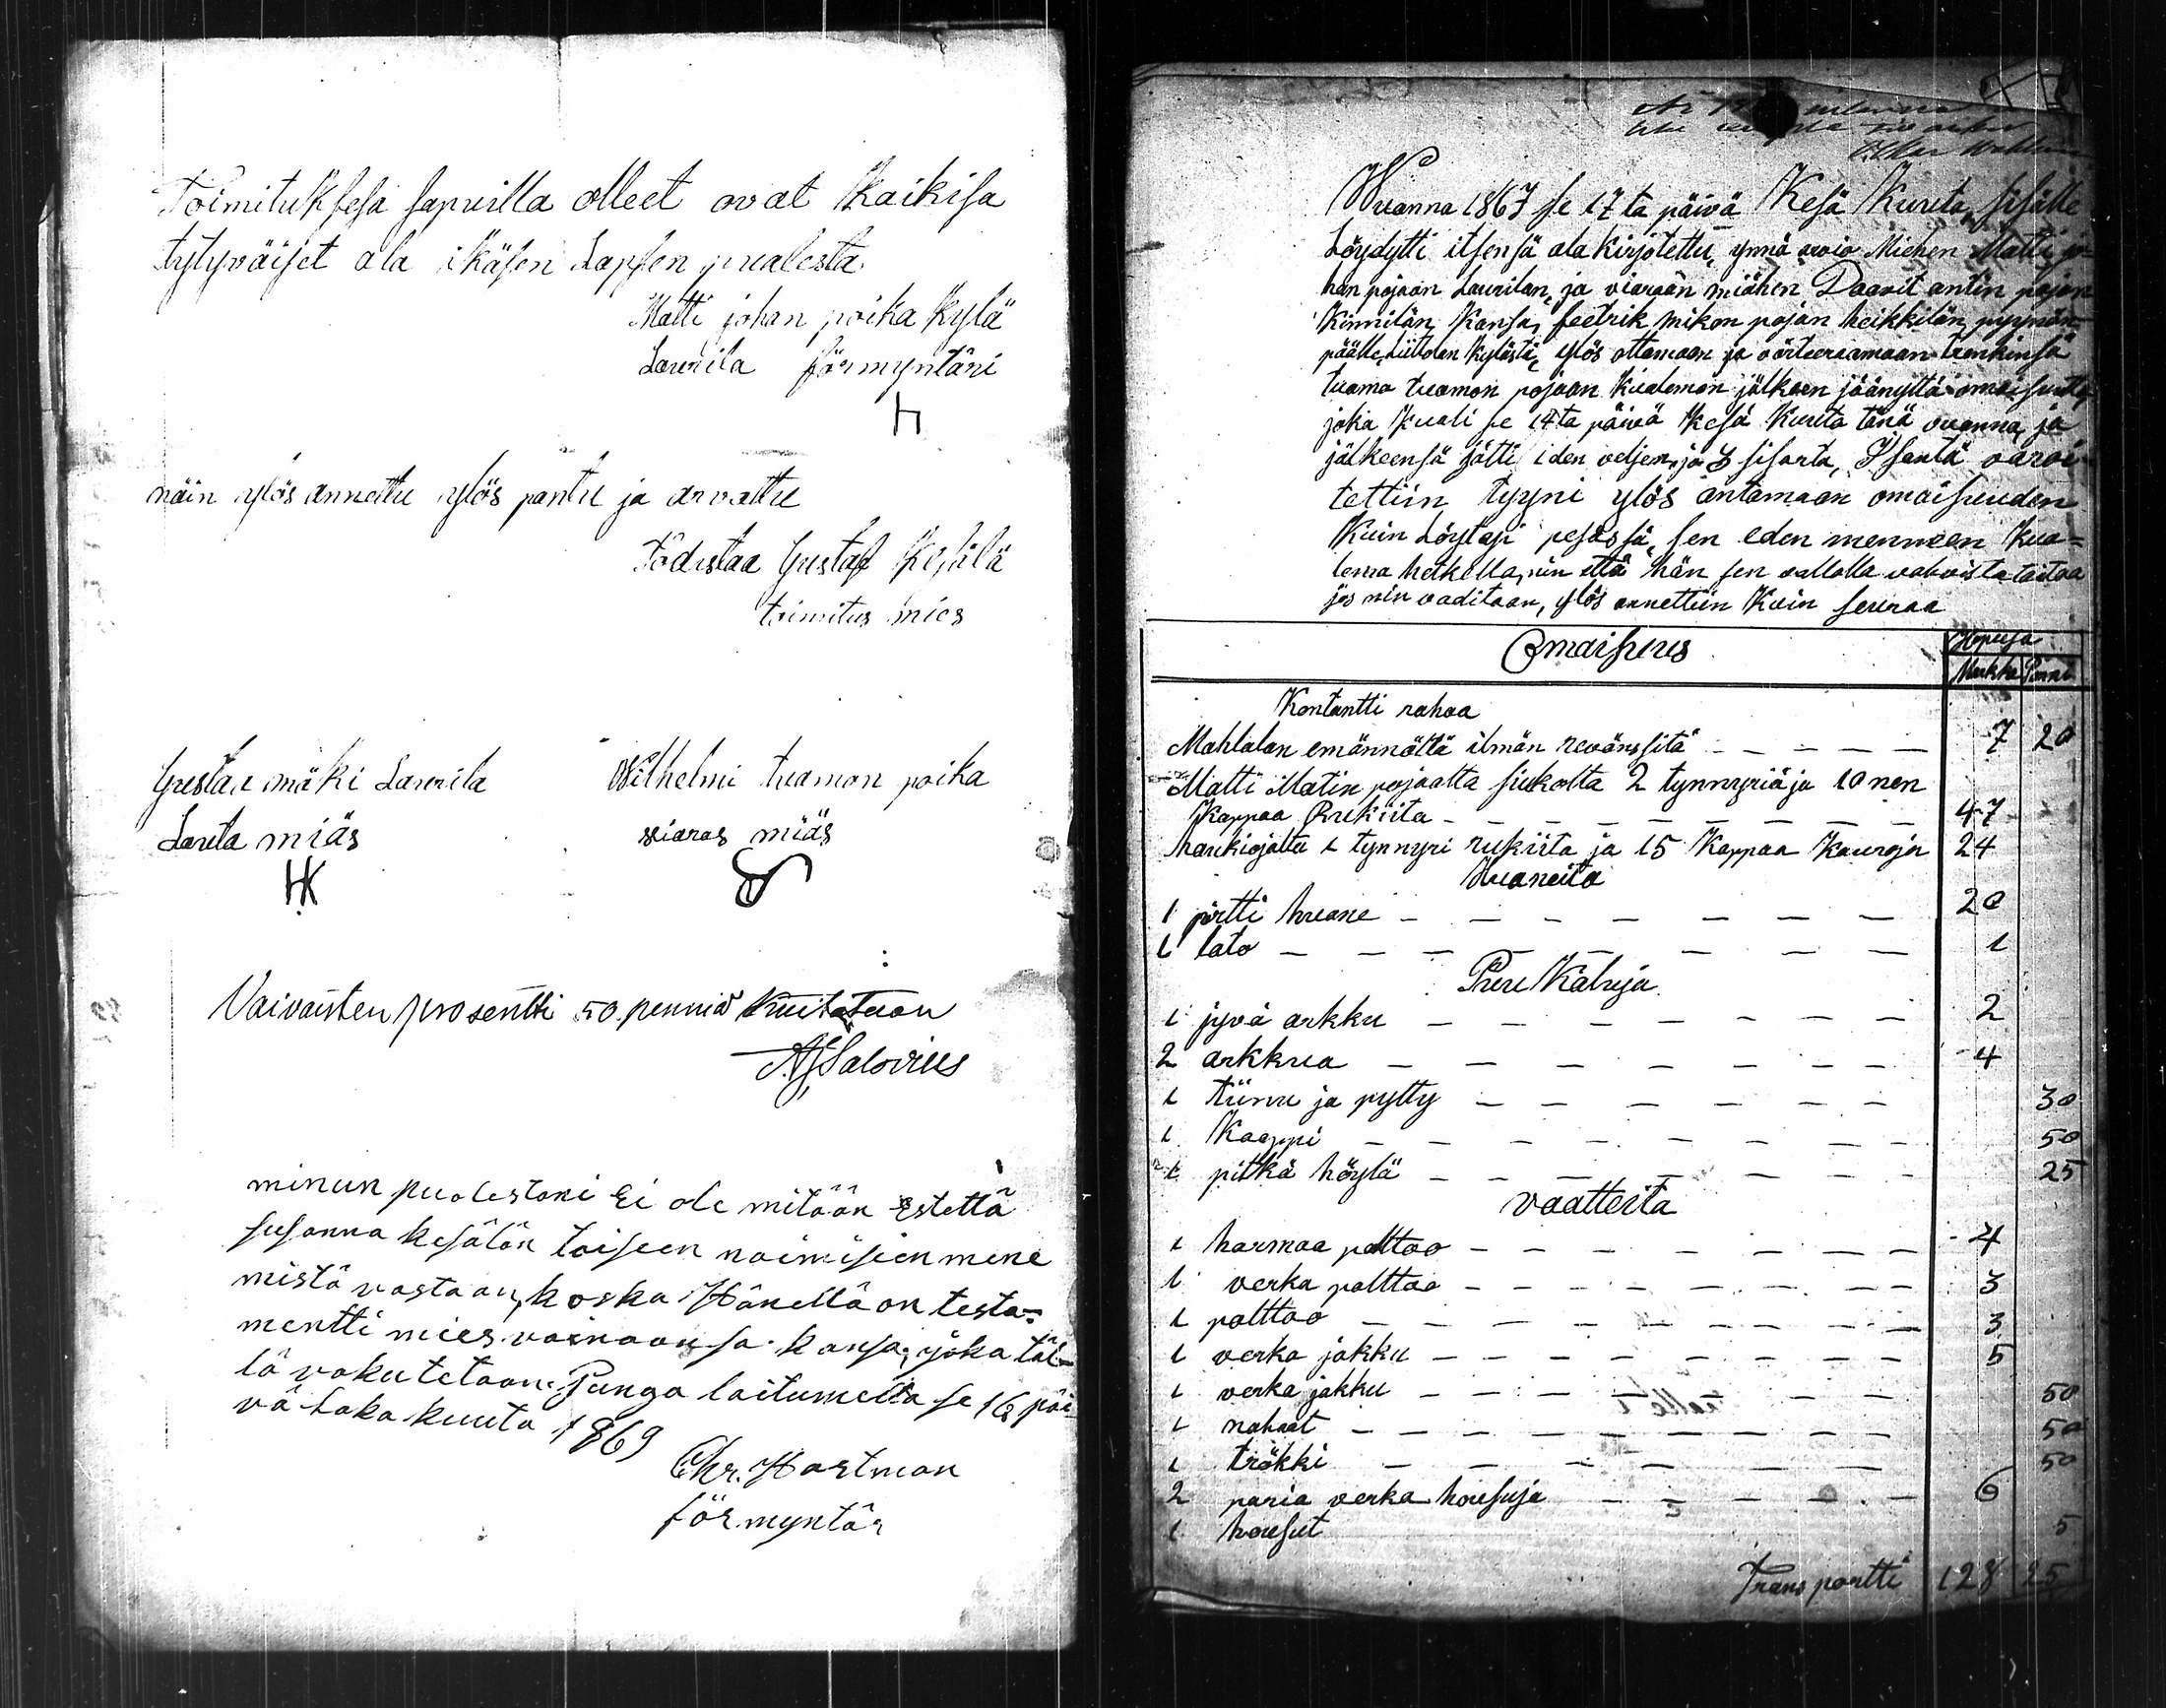 Toimituksesa sapuilla olleet ovat Kaikisa
tytyväiset ala ikäsen Lapsen pualesta
Matti johan poika Kylä
Laurila förmyntäri
näin ylös annettu ylös pantu ja arvattu
Todistaa Gustaf Kesälä
toimitus mies
Gustaa mäki Laurila
Wilhelmi tuamon poika
Lauta miäs
viaras miäs
HK
Vaivaisten prosentti 50 penniä kuitataan
AJSalovius
minun puolestani Ei ole mitään Estettä
susanna kesälän toiseen naimiseen mene
mistä vastaan, koska Hänellä on testa=
mentti mies vainaansa kansa, joka täl-
lä vakutetaan. Punga laitumella se 16 päi-
vä Loka kuuta 1869
Chr. Hartman
förmyntär
Wuanna 1867 se 17ta päivä Kesä Kuuta, sisälle
Löydytti itsensä ala kirjotettu, ynnä arvio Miehen Matti jo
han pojaan Laurilan, ja viaraan miähen Daavit antin pojan
Kinnilän, Kansa, feetrik mikon pojan heikkilän pyynön
päälle, kylästä, ylös ottamaan ja värteeraamaan trenkinsä
tuamo tuamon pojaan Kualeman jälkeen jäänyttä omaisuutta,
joka Kuali se 14ta päivä Kesä Kuuta tänä vuanna, ja
jälkeensä jätti iden veljen, ja 3 sisarta, Isäntä varoi
tettiin tyyni ylös antamaan omaisuuden
Kuin Löytayi pesässä, sen eden menneen Kua=
lema hetkellä, niin että hän sen vallalla vahvista taitaa
jos niin vaditaan, ylös annettiin Kuin seuraa
Omaisuus
Hopeesa
Markka Penni
Kontantti rahaa
Mahlalan emännältä ilmän revänssitä 7 20
Matti Matin pojaalta siukolta 2 tynnyriä ja 10 nen
Kappaa Rukiita 47
haukiojalta 1 tynnyri rukiita ja 15 Kappaa Kauroja 24
Huaneita
1 pirtti huane 20
1 lato 1
Puu Kaluja
1 jyvä arkku 2
2 arkkua 4
1 tiinu ja pytty 30
1 Kaappi 50
1 pitkä höylä 25
vaatteita
1 harmaa palttoo 4
1 verka palttoo 3
1 palttoo 3
1 verka jakku 5
1 verka jakku 50
1 nahaat 50
1 träkki 50
2 paria verka housuja 6
1 housut 5
Transportti 128 25